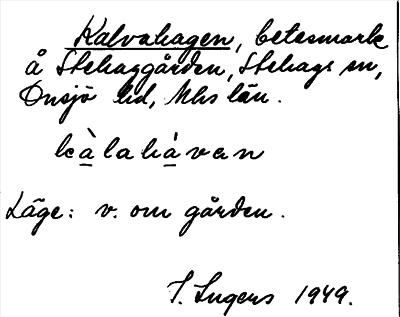 Kalvahagen, betesmark
å Stehaggården, Stehags sn,
Onsjö hd, Mhs län.
kàlahàvan
Läge: v. om gården.
I. Ingers 1949.